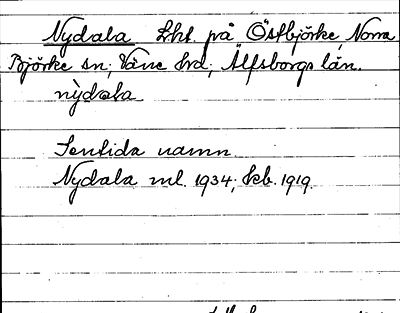 Nydala Lht på Östbjörke, Norra
Björke sn; Väne hd; Älfsborgs län.
nỳdala
Sentida namn.
Nydala ml. 1934; kb. 1919.